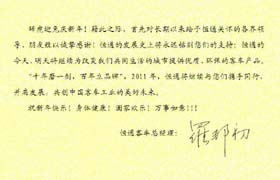 辞虎迎兔庆新年!藉此之际,首先对长期以来给予恒通关怀的各界领
导、朋友致以诚挚感谢!恒通的发展史上将永远铭刻您们的支持;恒通的
今天、明天将继续为改变我们共同生活的城市提供优质、环保的客车产品。
"十年磨一剑,百年立品牌",2011年,恒通将继续与您们携手同行、
并肩发展,共创中国客车工业的美好未来。
祝新年快乐!身体健康!阖家欢乐!万事如意!!!
恒通客车总经理: